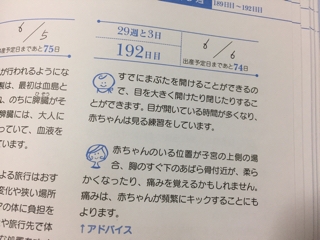 191日〜192日
6/5
出産予定日まであと75日
が行われるようにな
官は、最初は血島と
、のちに脾臓がそ
脾臓には、大人に
っていて、血液を
ています。
よる旅行はおす
変化や狭い場所
アの体に負担を
や旅行先で体
29週と3日
192日目
6/6
出産予定日まであと74日
すでにまぶたを開けることができるの
で、目を大きく開けたり閉じたりするこ
とができます。目が開いている時間が多くなり、
赤ちゃんは見る練習をしています。
赤ちゃんのいる位置が子宮の上側の場
合、胸のすぐ下のあばら骨付近が、柔ら
かくなったり、痛みを覚えるかもしれません。
痛みは、赤ちゃんが頻繁にキックすることにも
よります。
↑アドバイス